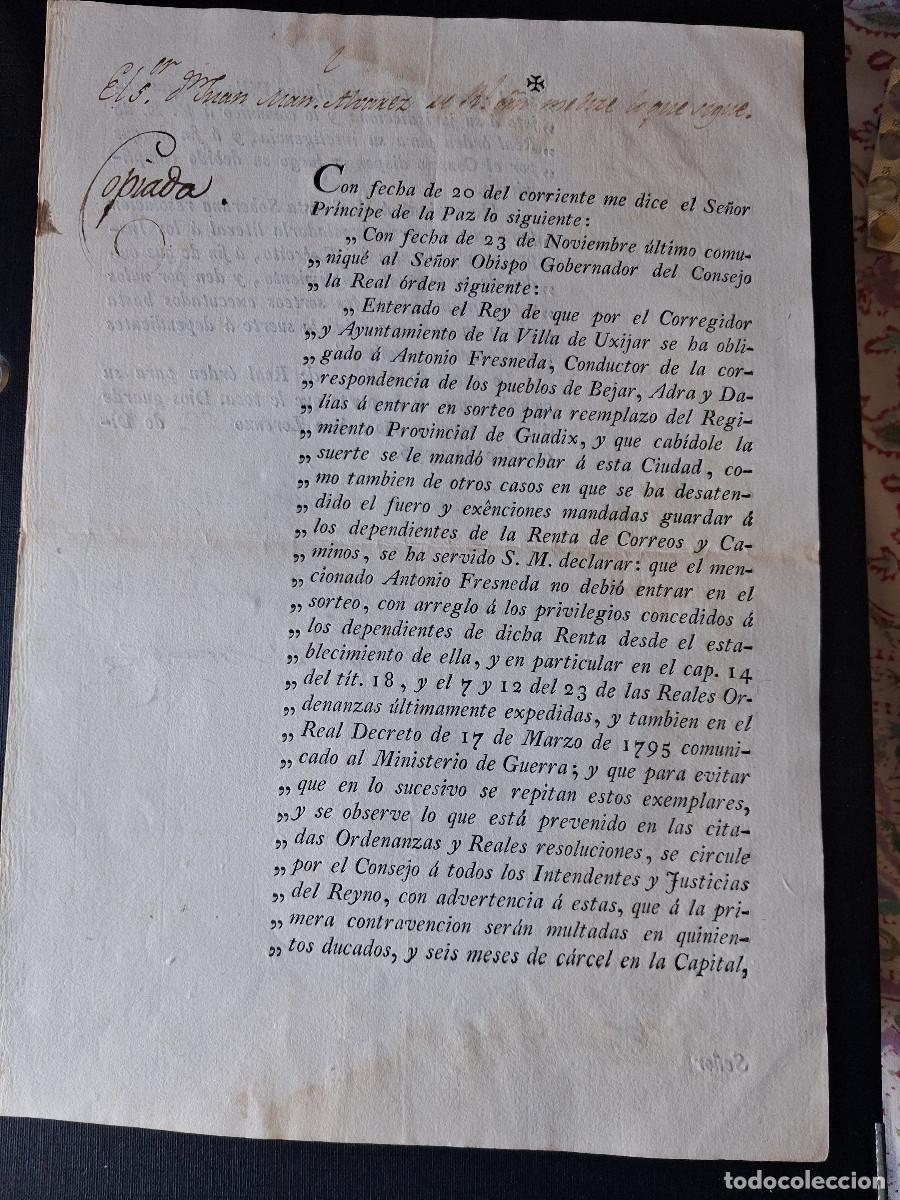 ✠
El S.or Dn Juan Man. Alvarez me dize lo que sigue.
Copiada.
Con fecha de 20 del corriente me dice el Señor
Príncipe de la Paz lo siguiente:
„ Con fecha de 23 de Noviembre último comu-
„ niqué al Señor Obispo Gobernador del Consejo
„ la Real órden siguiente:
„ Enterado el Rey de que por el Corregidor
„ y Ayuntamiento de la Villa de Uxijar se ha obli-
„ gado á Antonio Fresneda, Conductor de la cor-
„ respondencia de los pueblos de Bejar, Adra y Da-
„ lías á entrar en sorteo para reemplazo del Regi-
„ miento Provincial de Guadix, y que cabídole la
„ suerte se le mandó marchar á esta Ciudad, co-
„ mo tambien de otros casos en que se ha desaten-
„ dido el fuero y exênciones mandadas guardar á
„ los dependientes de la Renta de Correos y Ca-
„ minos, se ha servido S. M. declarar: que el men-
„ cionado Antonio Fresneda no debió entrar en el
„ sorteo, con arreglo á los privilegios concedidos á
„ los dependientes de dicha Renta desde el esta-
„ blecimiento de ella, y en particular en el cap. 14
„ del tít. 18, y el 7 y 12 del 23 de las Reales Or-
„ denanzas últimamente expedidas, y tambien en el
„ Real Decreto de 17 de Marzo de 1795 comuni-
„ cado al Ministerio de Guerra; y que para evitar
„ que en lo sucesivo se repitan estos exemplares,
„ y se observe lo que está prevenido en las cita-
„ das Ordenanzas y Reales resoluciones, se circule
„ por el Consejo á todos los Intendentes y Justicias
„ del Reyno, con advertencia á estas, que á la pri-
„ mera contravencion serán multadas en quinien-
„ tos ducados, y seis meses de cárcel en la Capital,
Señor
todocoleccion